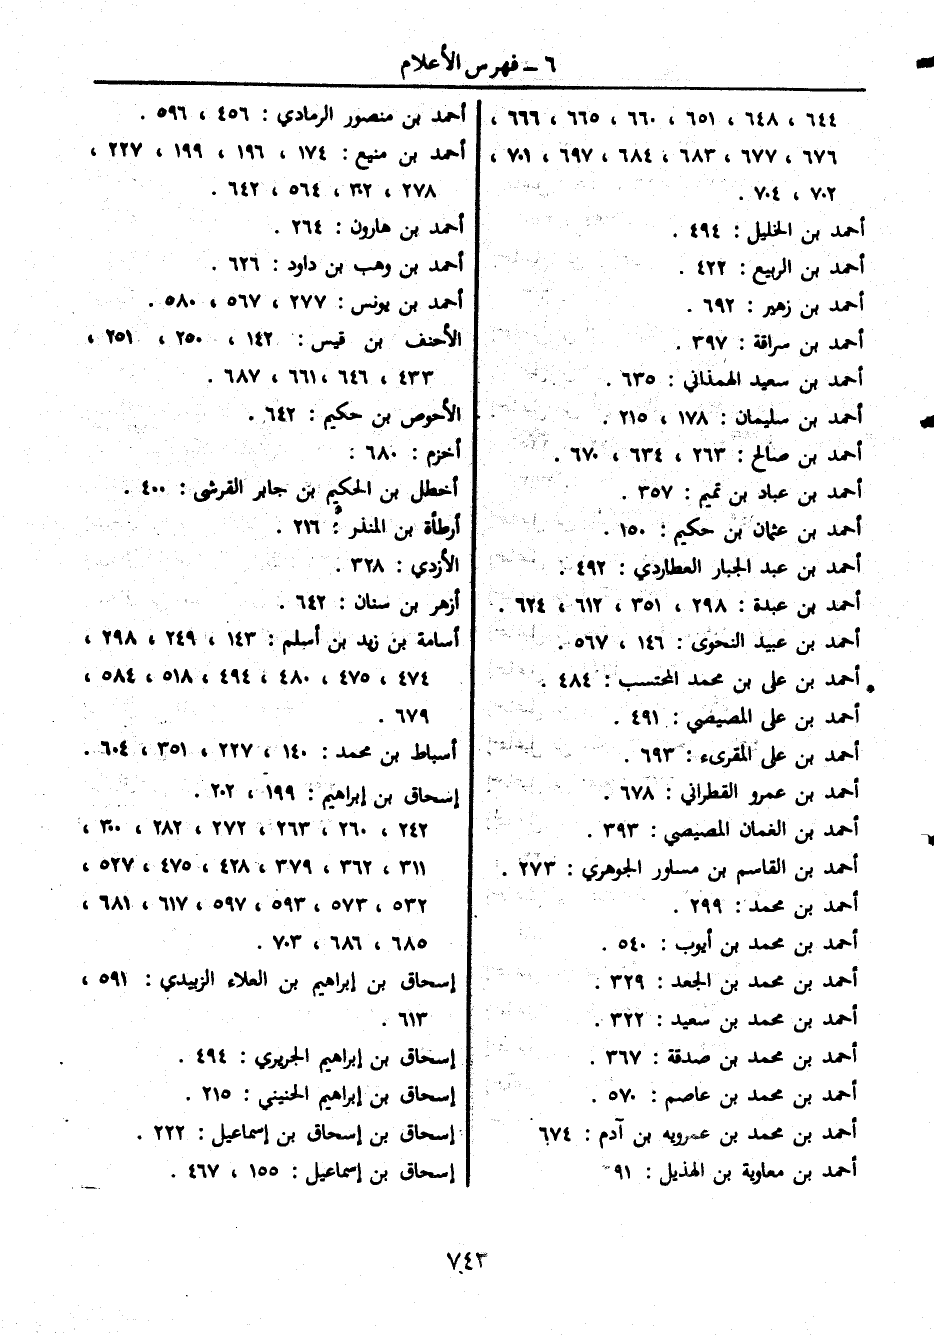 ٦ ــ فهرس الأعلام
٦٤٤ ، ٦٤٨ ، ٦٥١ ، ٦٦٠ ، ٦٦٥ ، ٦٦٦ ،
٦٧٦ ، ٦٧٧ ، ٦٨٣ ، ٦٨٤ ، ٦٩٧ ، ٧٠١ ،
٧٠٢ ، ٧٠٤ .
أحمد بن الخليل : ٤٩٤ .
أحمد بن الربيع : ٤٢٢ .
أحمد بن زهير : ٦٩٢ .
أحمد بن سراقة : ٣٩٧ .
أحمد بن سعيد الهمذاني : ٦٣٥ .
أحمد بن سليمان : ١٧٨ ، ٢١٥ .
أحمد بن صالح : ٢٦٣ ، ٦٣٤ ، ٦٧٠ .
أحمد بن عباد بن تميم : ٣٥٧ .
أحمد بن عثمان بن حكيم : ١٥٠ .
أحمد بن عبد الجبار العطاردي : ٤٩٢ .
أحمد بن عبدة : ٢٩٨ ، ٣٥١ ، ٦١٢ ، ٦٢٤ .
أحمد بن عبيد النحوى : ١٤٦ ، ٥٦٧ .
أحمد بن على بن محمد المحتسب : ٤٨٤ .
أحمد بن على المصيصي : ٤٩١ .
أحمد بن على المقرىء : ٦٩٣ .
أحمد بن عمرو القطراني : ٦٧٨ .
أحمد بن الغمان المصيصي : ٣٩٣ .
أحمد بن القاسم بن مساور الجوهري : ٢٧٣ .
أحمد بن محمد : ٢٩٩ .
أحمد بن محمد بن أيوب : ٥٤٠ .
أحمد بن محمد بن الجعد : ٣٢٩ .
أحمد بن محمد بن سعيد : ٣٢٢ .
أحمد بن محمد بن صدقة : ٣٦٧ .
أحمد بن محمد بن عاصم : ٥٧٠ .
أحمد بن محمد بن عمرويه بن آدم : ٦٧٤
أحمد بن معاوية بن الهذيل :
أحمد بن منصور الرمادي : ٤٥٦ ، ٥٩٦ .
أحمد بن منيع : ١٧٤ ، ١٩٦ ، ١٩٩ ، ٢٢٧ ،
٢٧٨ ، ٣٠٢ ، ٥٦٤ ، ٦٤٢ .
أحمد بن هارون : ٢٦٤ .
أحمد بن وهب بن داود : ٦٢٦ .
أحمد بن يونس : ٢٧٧ ، ٥٦٧ ، ٥٨٠ .
الأحنف بن قيس : ١٤٢ ، ٢٥٠ ، ٢٥١ ،
٤٣٣ ، ٦٤٦ ، ٦٦١ ، ٦٨٧ .
الأحوص بن حكيم : ٦٤٢ .
أخزم : ٦٨٠ :
أخطل بن الحكيم بن جابر القرشى : ٤٠٠ .
أرطأة بن المنذر : ٢١٦ .
الأزدي : ٣٢٨ .
أزهر بن سنان : ٦٤٢ .
أسامة بن زيد بن أسلم : ١٤٣ ، ٢٤٩ ، ٢٩٨ ،
٤٧٤ ، ٤٧٥ ، ٤٨٠ ، ٤٩٤ ، ٥١٨ ، ٥٨٤ ،
٦٧٩ .
أسباط بن محمد : ١٤٠ ، ٢٢٧ ، ٣٥١ ، ٦٠٤ .
إسحاق بن إبراهيم : ١٩٩ ، ٢٠٢ .
٢٤٢ ، ٢٦٠ ، ٢٦٣ ، ٢٧٢ ، ٢٨٢ ، ٣٠٠ ،
٣١١ ، ٣٦٢ ، ٣٧٩ ، ٤٢٨ ، ٤٧٥ ، ٥٢٧ ،
٥٣٢ ، ٥٧٣ ، ٥٩٣ ، ٥٩٧ ، ٦١٧ ، ٦٨١ ،
٦٨٥ ، ٦٨٦ ، ٧٠٣ .
إسحاق بن إبراهيم بن العلاء الزبيدي : ٥٩١ ،
٦١٣ .
إسحاق بن إبراهيم الجريري : ٤٩٤ .
إسحاق بن إبراهيم الحنيني : ٢١٥ .
إسحاق بن إسحاق بن إسماعيل : ٢٢٢ .
إسحاق بن إسماعيل : ١٥٥ ، ٤٦٧ .
٧٤٣